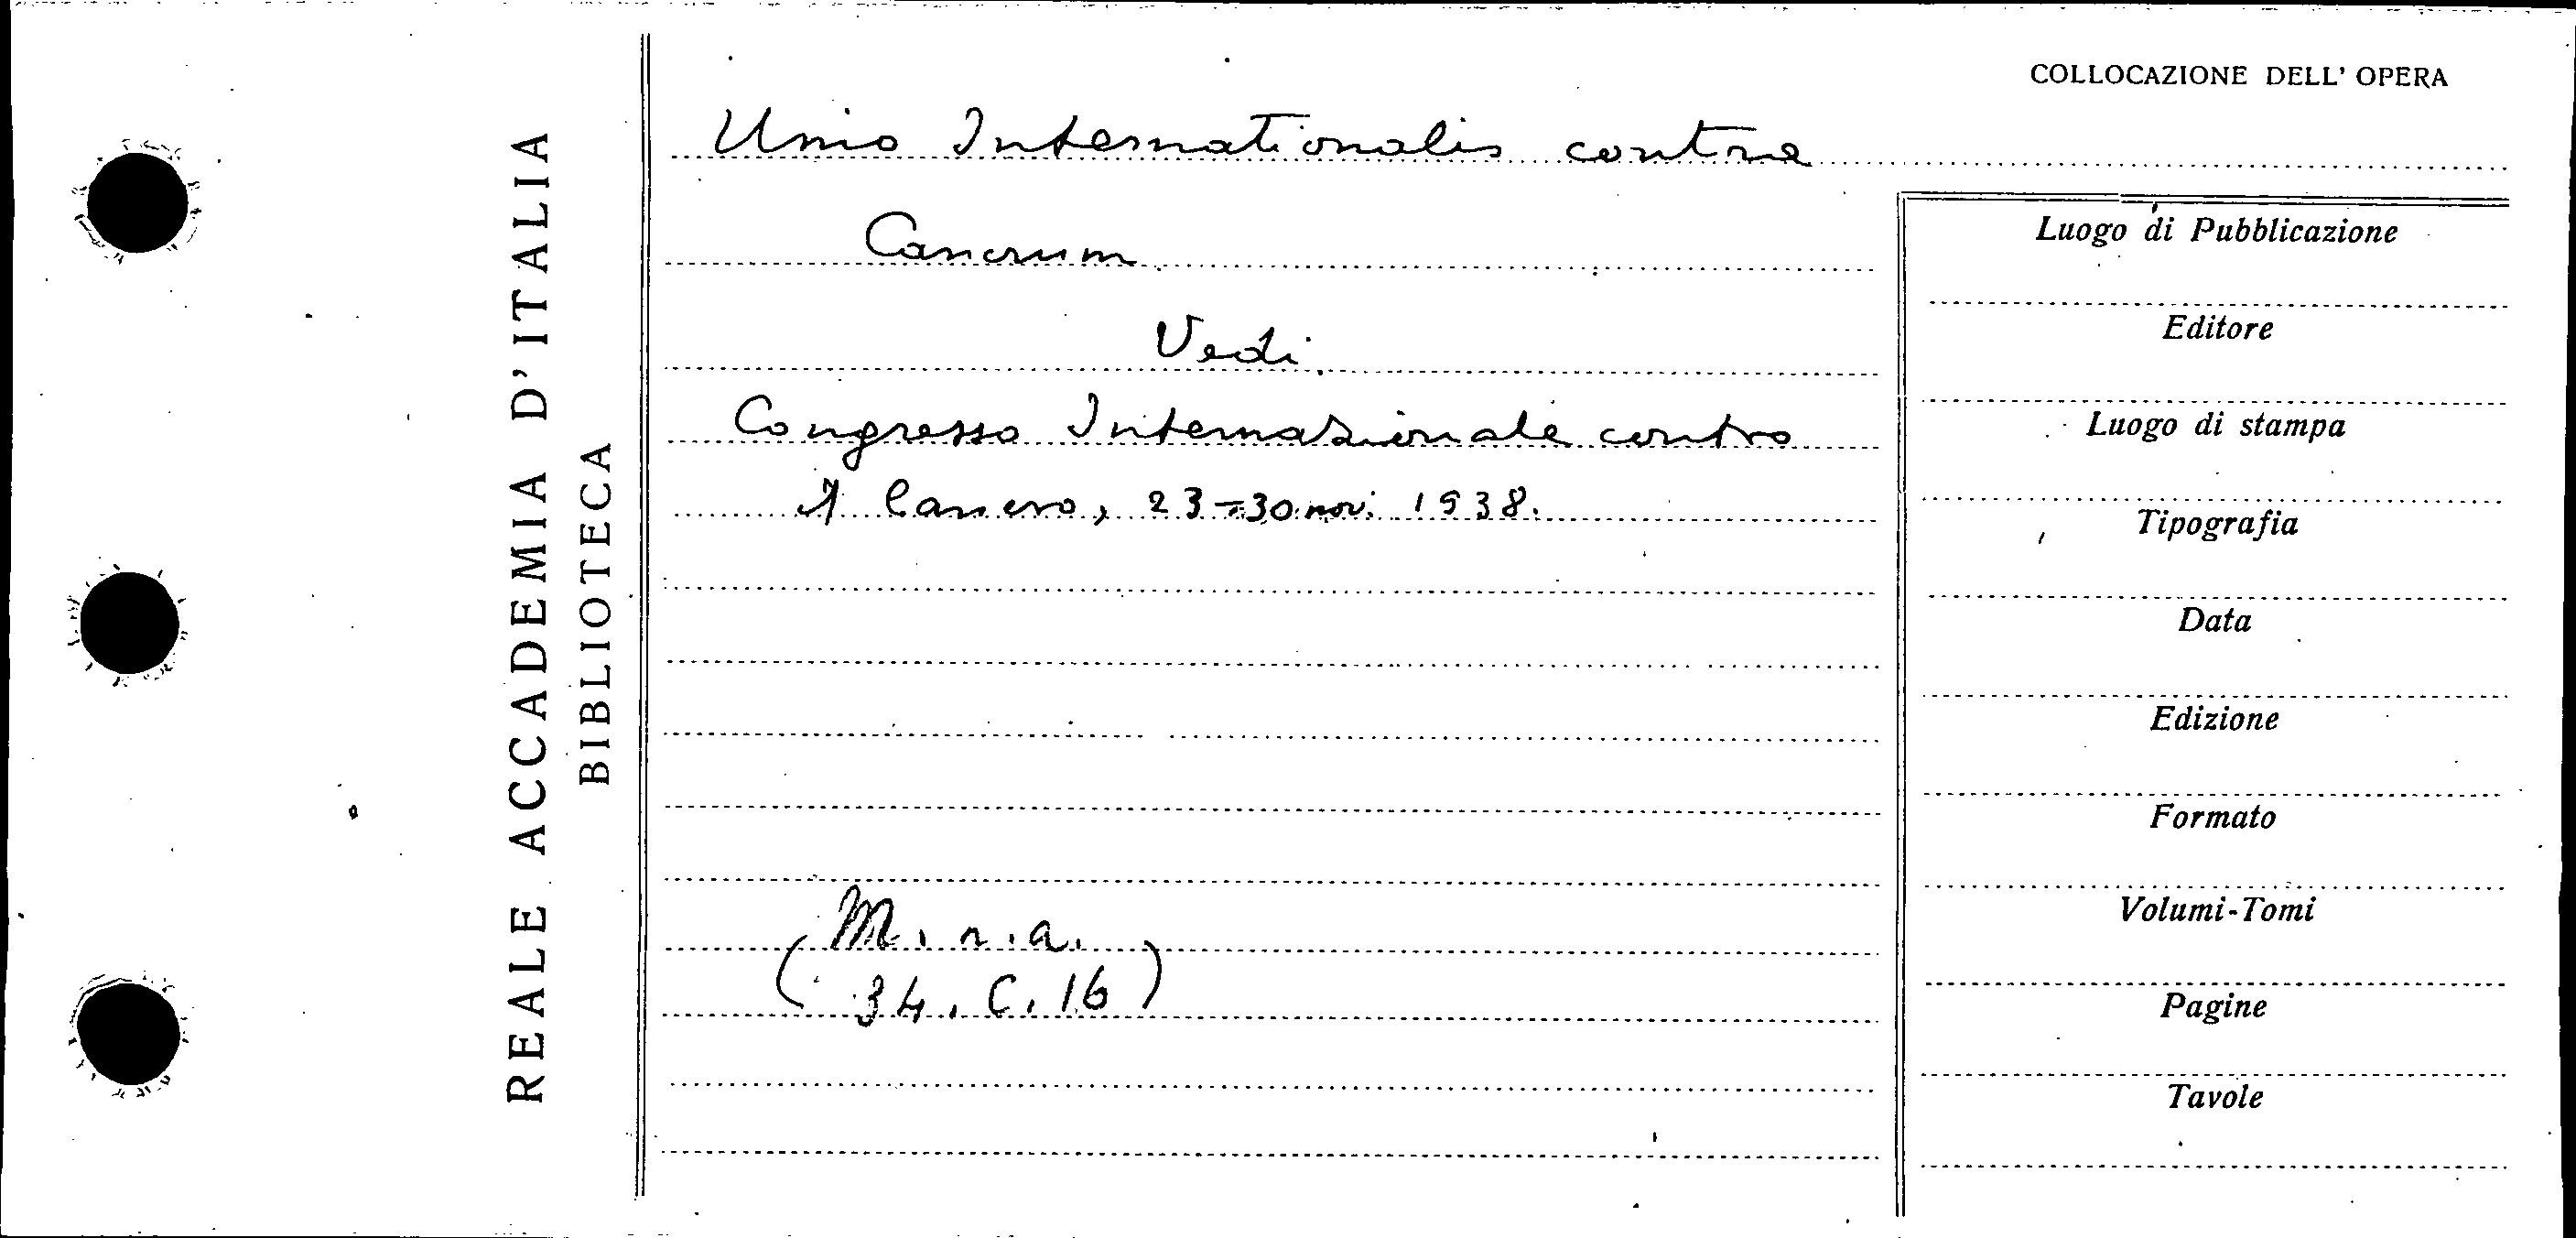 REALE ACCADEMIA D'ITALIA
BIBLIOTECA
COLLOCAZIONE DELL' OPERA
Unio Internationalis contra
Cancrum
Vedi
Congresso Internazionale contro
il Cancro, 23-30 nov. 1938.
(M. n. a.
34. C. 16)
Luogo di Pubblicazione
Editore
Luogo di stampa
Tipografia
Data
Edizione
Formato
Volumi-Tomi
Pagine
Tavole